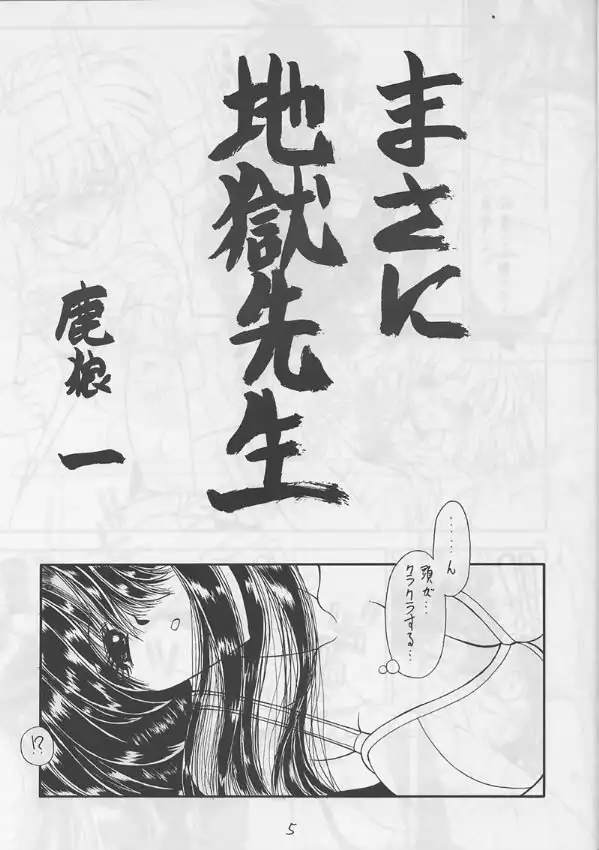 まさに
地獄先生
鹿狼 一
……ん
頭が…
クラクラする…
!?
5